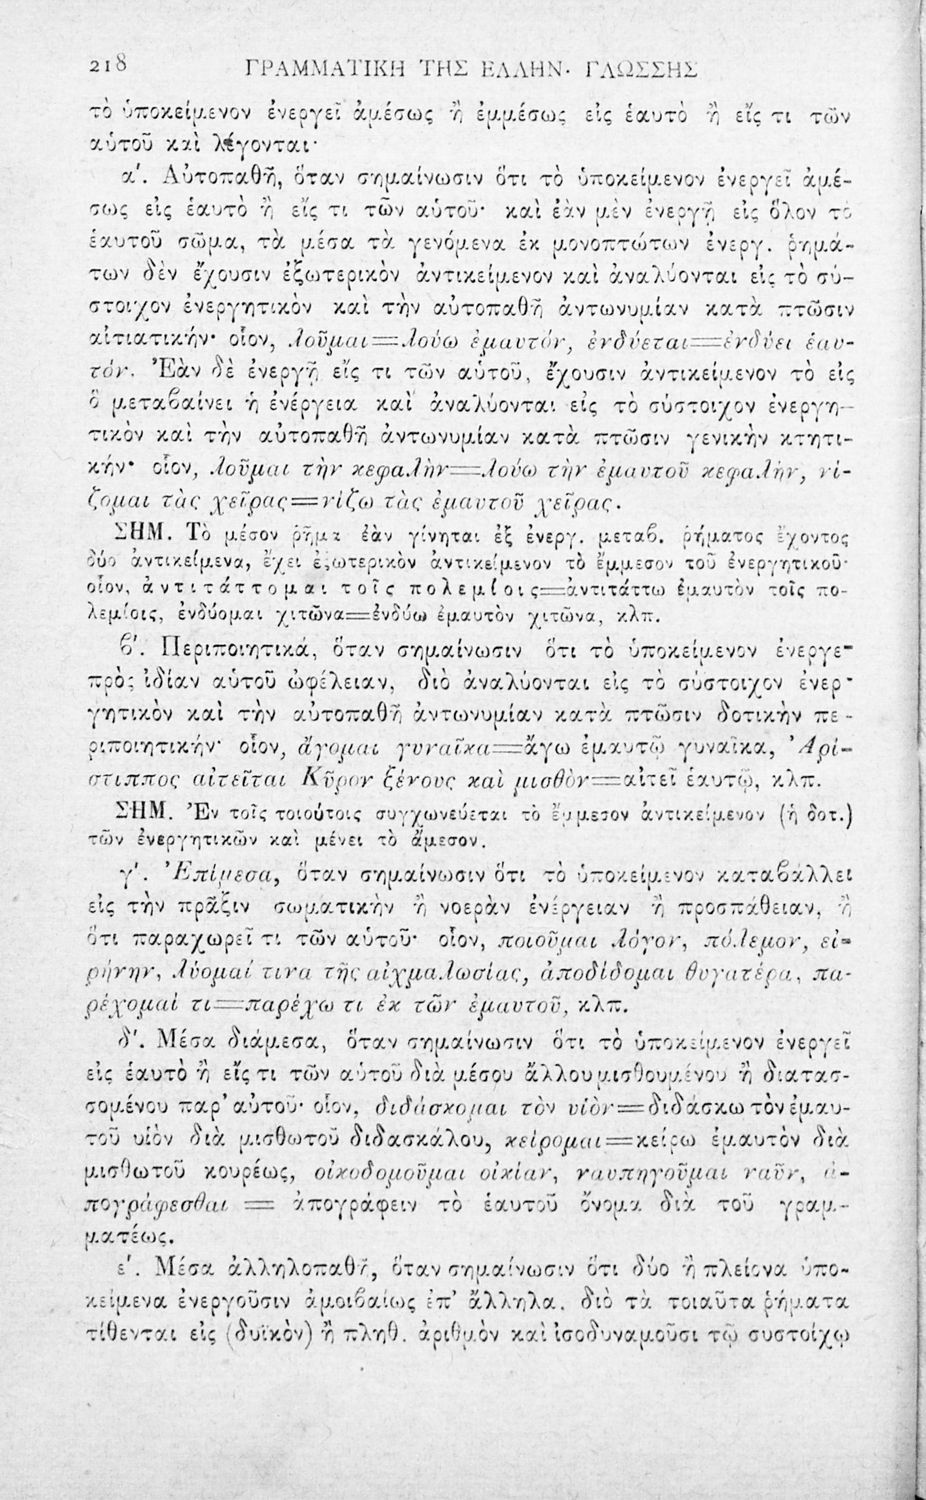 218 ΓΡΑΜΜΑΤΙΚΗ ΤΗΣ ΕΛΛΗΝ· ΓΛΩΣΣΗΣ
τὸ ὑποκείμενον ἐνεργεῖ ἀμέσως ἢ ἐμμέσως εἰς ἑαυτὸ ἢ εἴς τι τῶν
αὑτοῦ καὶ λέγονται·
α'. Αὐτοπαθῆ, ὅταν σημαίνωσιν ὅτι τὸ ὑποκείμενον ἐνεργεῖ ἀμέ-
σως εἰς ἑαυτὸ ἢ εἴς τι τῶν αὑτοῦ· καὶ ἐὰν μὲν ἐνεργῇ εἰς ὅλον τὸ
ἑαυτοῦ σῶμα, τὰ μέσα τὰ γενόμενα ἐκ μονοπτώτων ἐνεργ. ῥημά-
των δὲν ἔχουσιν ἐξωτερικὸν ἀντικείμενον καὶ ἀναλύονται εἰς τὸ σύ-
στοιχον ἐνεργητικὸν καὶ τὴν αὐτοπαθῆ ἀντωνυμίαν κατὰ πτῶσιν
αἰτιατικήν· οἷον, λοῦμαι=λούω ἐμαυτόν, ἐνδύεται=ἐνδύει ἑαυ-
τόν. Ἐὰν δὲ ἐνεργῇ εἴς τι τῶν αὑτοῦ, ἔχουσιν ἀντικείμενον τὸ εἰς
ὃ μεταβαίνει ἡ ἐνέργεια καὶ ἀναλύονται εἰς τὸ σύστοιχον ἐνεργη-
τικὸν καὶ τὴν αὐτοπαθῆ ἀντωνυμίαν κατὰ πτῶσιν γενικὴν κτητι-
κήν· οἷον, λοῦμαι τὴν κεφαλὴν=λούω τὴν ἐμαυτοῦ κεφαλήν, νί-
ζομαι τὰς χεῖρας=νίζω τὰς ἐμαυτοῦ χεῖρας.
ΣΗΜ. Τὸ μέσον ῥῆμα ἐὰν γίνηται ἐξ ἐνεργ. μεταβ. ῥήματος ἔχοντος
δύο ἀντικείμενα, ἔχει ἐξωτερικὸν ἀντικείμενον τὸ ἔμμεσον τοῦ ἐνεργητικοῦ·
οἷον, ἀντιτάττομαι τοῖς πολεμίοις=ἀντιτάττω ἐμαυτὸν τοῖς πο-
λεμίοις, ἐνδύομαι χιτῶνα=ἐνδύω ἐμαυτὸν χιτῶνα, κλπ.
β'. Περιποιητικά, ὅταν σημαίνωσιν ὅτι τὸ ὑποκείμενον ἐνεργε-
πρὸς ἰδίαν αὑτοῦ ὠφέλειαν, διὸ ἀναλύονται εἰς τὸ σύστοιχον ἐνερ-
γητικὸν καὶ τὴν αὐτοπαθῆ ἀντωνυμίαν κατὰ πτῶσιν δοτικὴν πε-
ριποιητικήν· οἷον, ἄγομαι γυναῖκα=ἄγω ἐμαυτῷ γυναῖκα, Ἀρί-
στιππος αἰτεῖται Κῦρον ξένους καὶ μισθὸν=αἰτεῖ ἑαυτῷ, κλπ.
ΣΗΜ. Ἐν τοῖς τοιούτοις συγχωνεύεται τὸ ἔμμεσον ἀντικείμενον (ἡ δοτ.)
τῶν ἐνεργητικῶν καὶ μένει τὸ ἄμεσον.
γ'. Ἐπίμεσα, ὅταν σημαίνωσιν ὅτι τὸ ὑποκείμενον καταβάλλει
εἰς τὴν πρᾶξιν σωματικὴν ἢ νοερὰν ἐνέργειαν ἢ προσπάθειαν, ἢ
ὅτι παραχωρεῖ τι τῶν αὑτοῦ· οἷον, ποιοῦμαι λόγον, πόλεμον, εἰ-
ρήνην, λύομαί τινα τῆς αἰχμαλωσίας, ἀποδίδομαι θυγατέρα, πα-
ρέχομαί τι=παρέχω τι ἐκ τῶν ἐμαυτοῦ, κλπ.
δ'. Μέσα διάμεσα, ὅταν σημαίνωσιν ὅτι τὸ ὑποκείμενον ἐνεργεῖ
εἰς ἑαυτὸ ἢ εἴς τι τῶν αὑτοῦ διὰ μέσου ἄλλου μισθουμένου ἢ διατασ-
σομένου παρ' αὐτοῦ· οἷον, διδάσκομαι τὸν υἱὸν=διδάσκω τὸν ἐμαυ-
τοῦ υἱὸν διὰ μισθωτοῦ διδασκάλου, κείρομαι=κείρω ἐμαυτὸν διὰ
μισθωτοῦ κουρέως, οἰκοδομοῦμαι οἰκίαν, ναυπηγοῦμαι ναῦν, ἀ-
πογράφεσθαι = ἀπογράφειν τὸ ἑαυτοῦ ὄνομα διὰ τοῦ γραμ-
ματέως.
ε'. Μέσα ἀλληλοπαθῆ, ὅταν σημαίνωσιν ὅτι δύο ἢ πλείονα ὑπο-
κείμενα ἐνεργοῦσιν ἀμοιβαίως ἐπ' ἄλληλα. διὸ τὰ τοιαῦτα ῥήματα
τίθενται εἰς (δυϊκὸν) ἢ πληθ. ἀριθμὸν καὶ ἰσοδυναμοῦσι τῷ συστοίχῳ